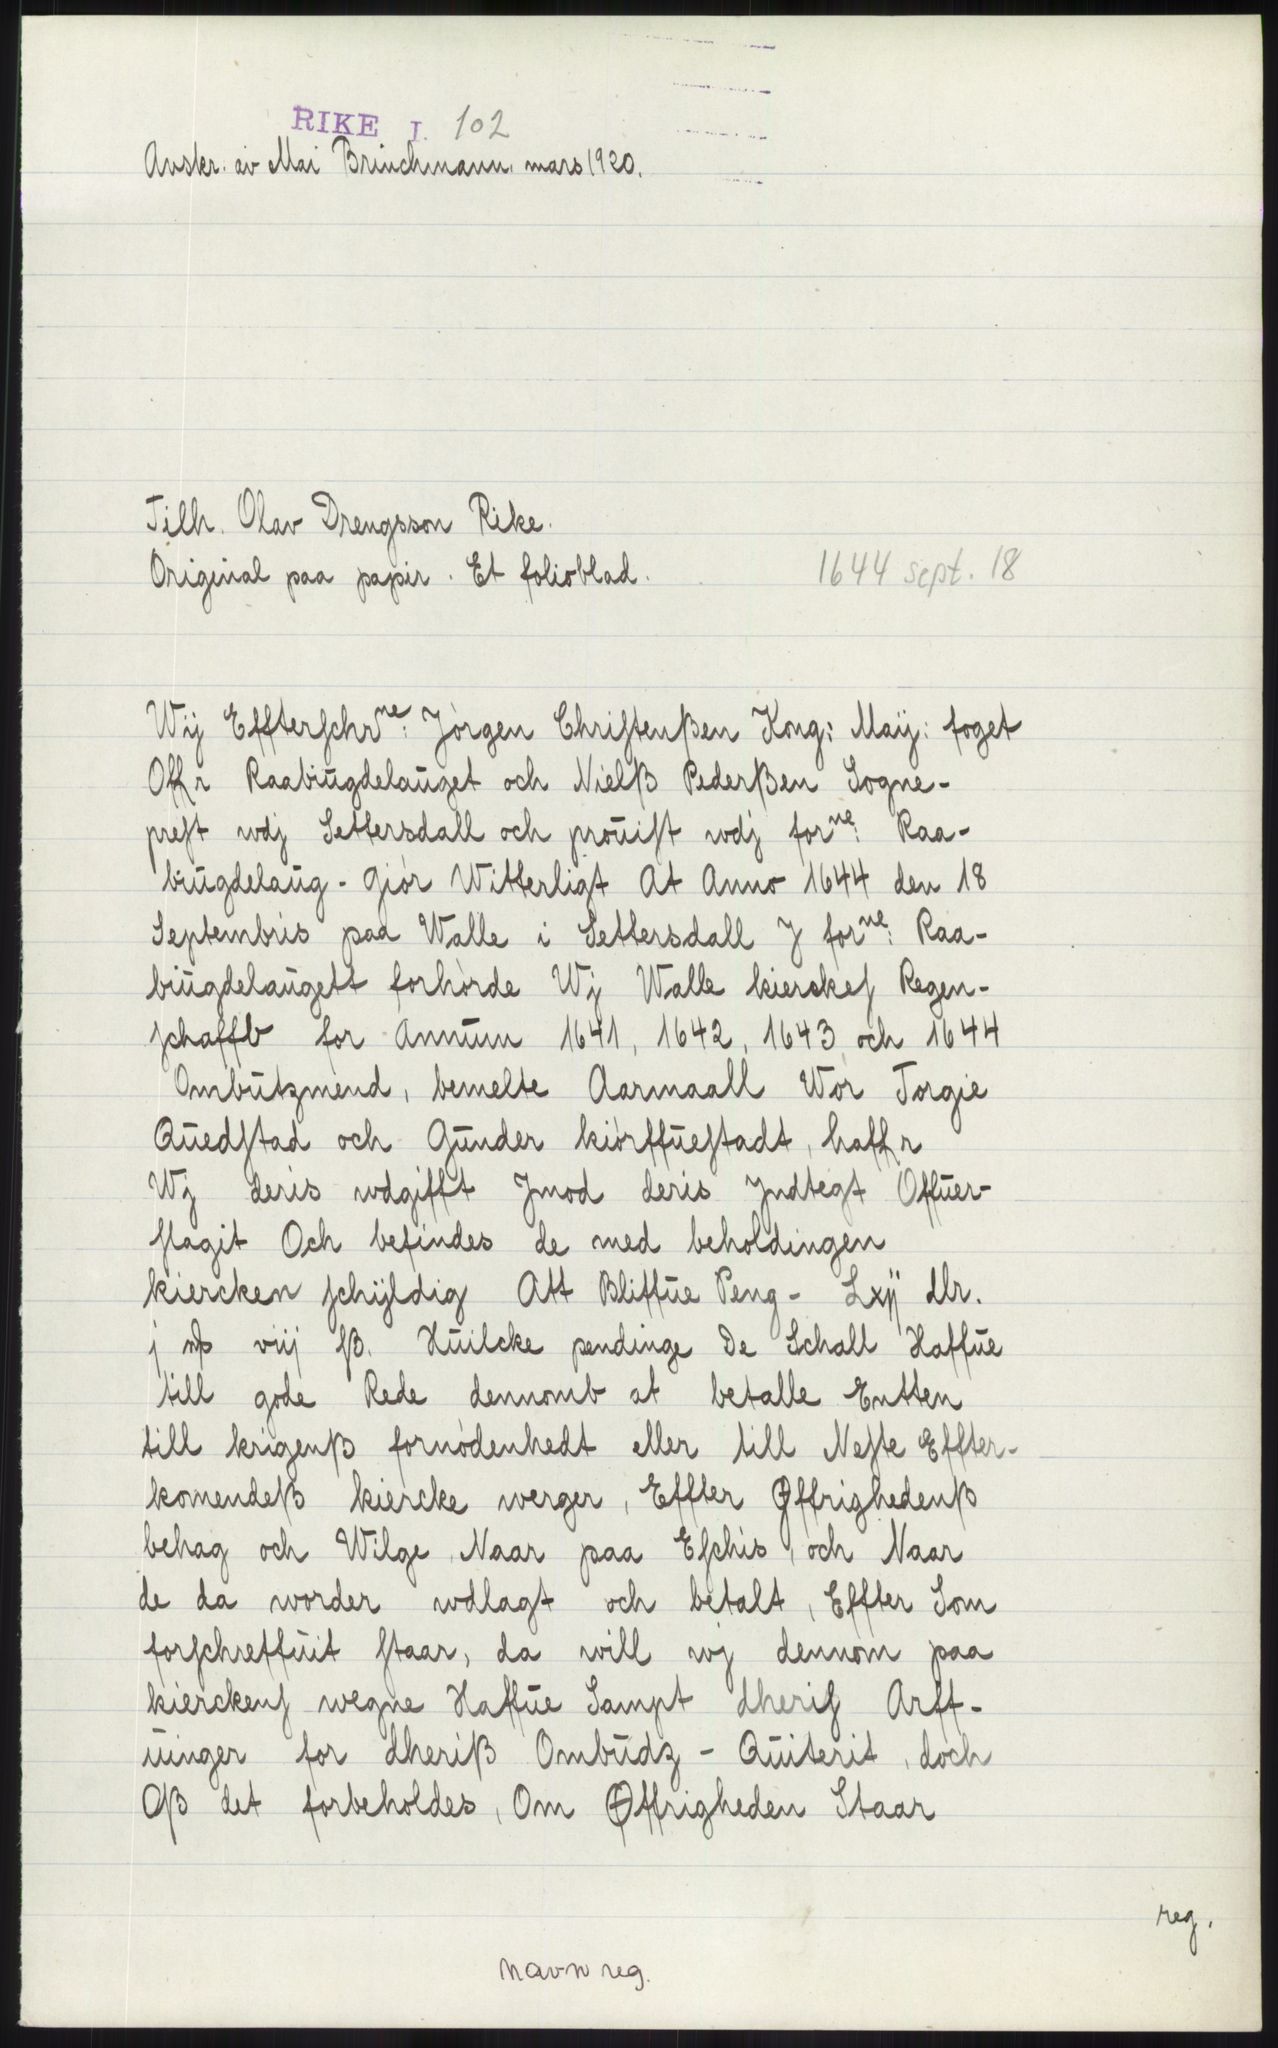 RIKE I. 102
Avskr. av Mai Brinchmann. mars 1920.
Tilh. Olav Drengsson Rike.
Original paa papir. Et folioblad.
1644 sept. 18
Wij Effterſchrne: Jørgen Chriſtenßen Kong: Maÿ: foget
Offr Raabiugdelauget och Nielß Pederßen Sogne-
preſt wdj Settersdall och prouiſt wdj forne: Raa-
biugdelaug - Giør Witterligt At Anno 1644 den 18
Septembris paa Walle i Settersdall J forne: Raa-
biugdelaugett forhørde Wj Walle kierckeſ Regen-
ſchaffb for Annum 1641, 1642, 1643 och 1644
Ombutzmend, bemelte Aarmaall Wor Torgie
Quedſtad och Gunder kiørffueſtadt, haffr
Wj deris wdgifft Jmod deris Jndtegt Offuer-
ſlagit Och befindes de med beholdingen
kiercken ſchÿldig Att Bliffue Peng - Lxÿ dlr.
j viij ß. Huilcke pendinge De Schall Haffue
till gode Rede dennomb at betalle Entten
till krigenß fornødenhedt eller till Neſte Effter-
komendeß kiercke werger, Effter Øffrighedenß
behag och Wilge, Naar paa Eſchis, och Naar
de da worder wdlagt och betalt, Effter Som
forſchreffuit ſtaar, da will wj dennom paa
kierckenſ wegne Haffue Sampt dheriſ Arff-
uinger for dheriß Ombudz - Quiterit, doch
Oß det forbeholdes, Om Øffrigheden Staar
reg.
navn reg.